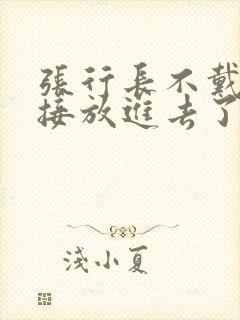 張行長不戴
接放進去了
淺小夏